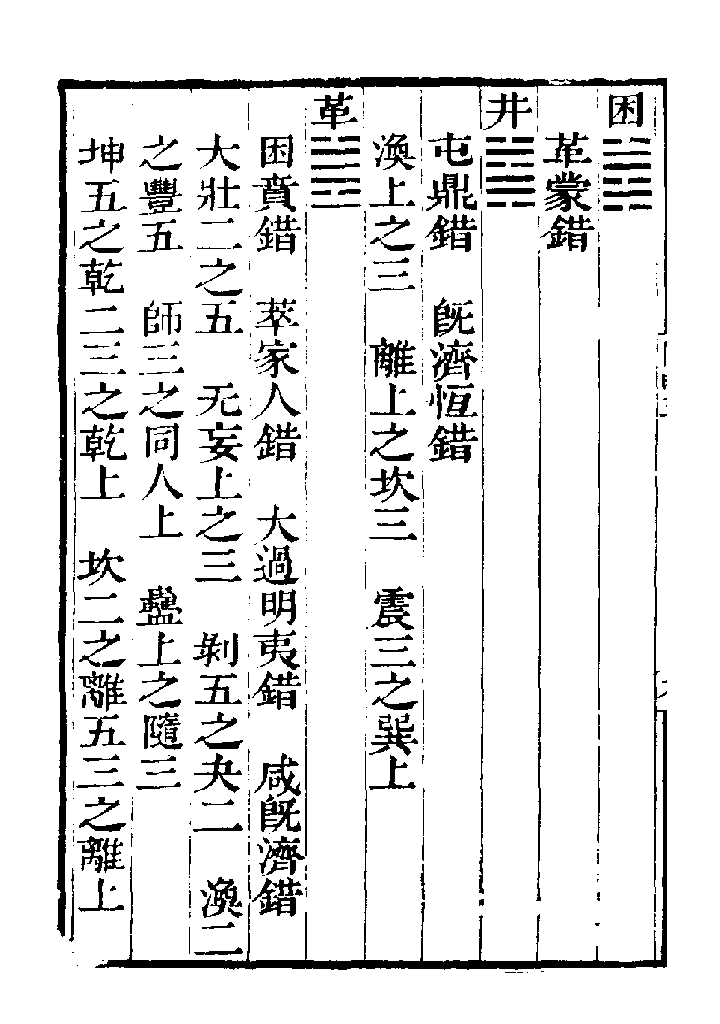 困䷮
革蒙錯
井䷯
屯鼎錯　旣濟恒錯
渙上之三　離上之坎三　震三之巽上
革䷰
困賁錯　萃家人錯　大過明夷錯　咸旣濟錯
大壯二之五　无妄上之三　剝五之夬二　渙二
之豐五　師三之同人上　蠱上之隨三
坤五之乾二三之乾上　坎二之離五三之離上